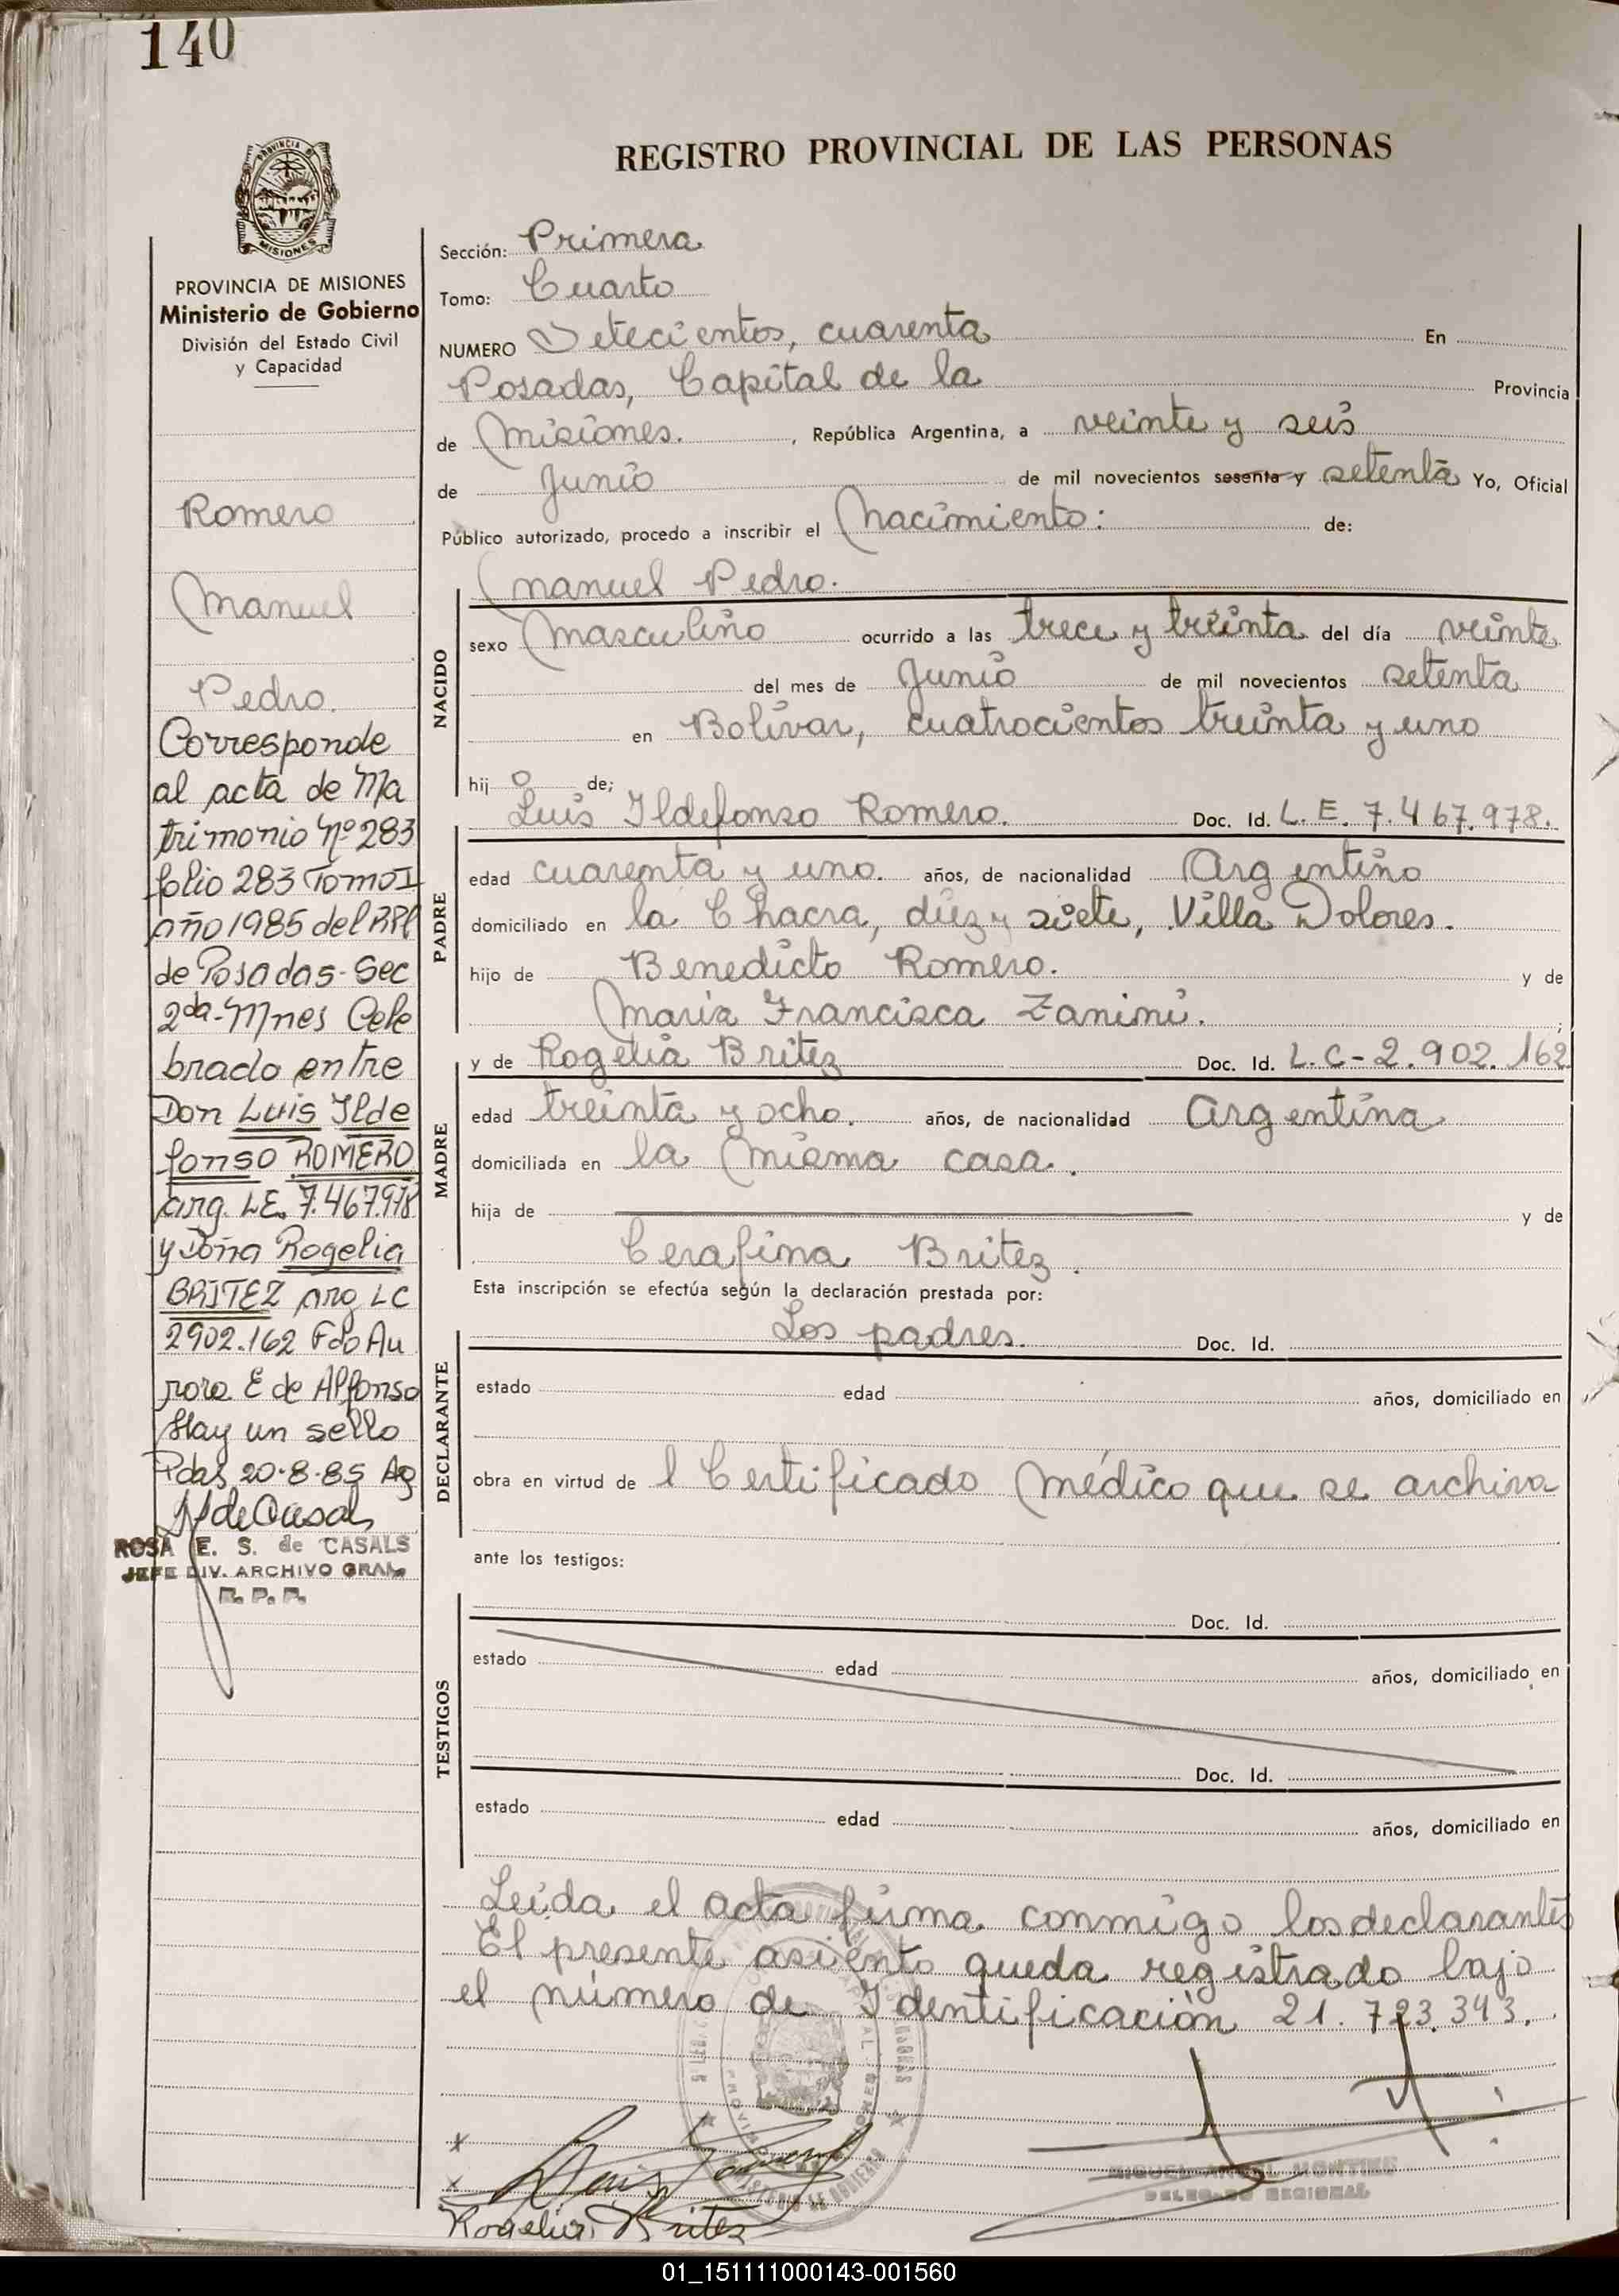 140
REGISTRO PROVINCIAL DE LAS PERSONAS
PROVINCIA DE
MISIONES
PROVINCIA DE MISIONES
Ministerio de Gobierno
División del Estado Civil
y Capacidad
Romero
Manuel
Pedro.
Corresponde
al acta de Ma
trimonio Nº 283
folio 283 Tomo I
año 1985 del RPP
de Posadas-Sec
2da-Mnes Cele
brado entre
Don Luis Ilde
fonso ROMERO
arg. LE. 7.467.978
y Doña Rogelia
BRITEZ arg LC
2902.162 Fdo Au
rora E de Alfonso
Hay un sello
Pdas 20-8-85 Ag
ROSA E. S. de CASALS
JEFE DIV. ARCHIVO GRAL
R. P. P.
Sección: Primera
Tomo: Cuarto
NUMERO Setecientos, cuarenta En
Posadas, Capital de la Provincia
de Misiones. , República Argentina, a veinte y seis
de Junio de mil novecientos sesenta y setenta Yo, Oficial
Público autorizado, procedo a inscribir el Nacimiento: de:
Manuel Pedro.
NACIDO
sexo Masculino ocurrido a las trece y treinta del día veinte
del mes de Junio de mil novecientos setenta
en Bolívar, cuatrocientos treinta y uno
hij o de;
Luis Ildefonso Romero. Doc. Id. L. E. 7.467.978.
PADRE
edad cuarenta y uno. años, de nacionalidad Argentino
domiciliado en la Chacra, diez y siete, Villa Dolores.
hijo de Benedicto Romero. y de
María Francisca Zanini.
y de Rogelia Britez Doc. Id. L.C-2.902.162
MADRE
edad treinta y ocho. años, de nacionalidad Argentina
domiciliada en la misma casa.
hija de y de
Cerafina Britez.
Esta inscripción se efectúa según la declaración prestada por:
Los padres. Doc. Id.
DECLARANTE
estado edad años, domiciliado en
obra en virtud de l Certificado Médico que se archiva
ante los testigos:
Doc. Id.
TESTIGOS
estado edad años, domiciliado en
Doc. Id.
estado edad años, domiciliado en
Leída el acta firma conmigo los declarantes
El presente asiento queda registrado bajo
el número de Identificación 21.723.343.
x
x Luis Romero
Rogelia Britez
MIGUEL ANGEL MONTIEL
DELEGADO REGIONAL
01_151111000143-001560